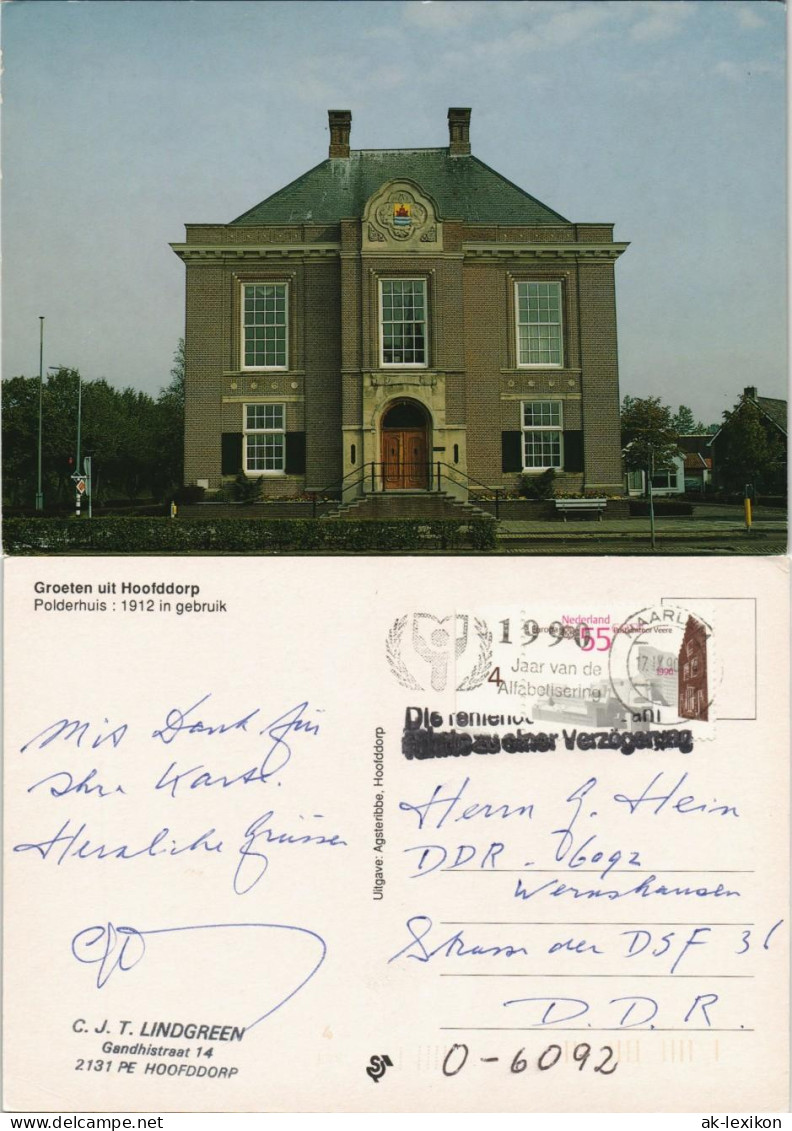 Groeten uit Hoofddorp
Polderhuis : 1912 in gebruik
1990
Jaar van de
Alfabetisering
4
Nederland
55
1990
HAARLEM
17.IV.90
Die
zu einer Verzögerung
Mit Dank für
Ihre Karte.
Herzliche Grüsse
C. J. T. LINDGREEN
Gandhistraat 14
2131 PE HOOFDDORP
Uitgave: Agsteribbe, Hoofddorp
Herrn G. Hein
DDR - 6092
Wernshausen
Strasse der DSF 36
D. D. R.
O-6092
www.ak-ansichtskarten.de
ak-lexikon.com